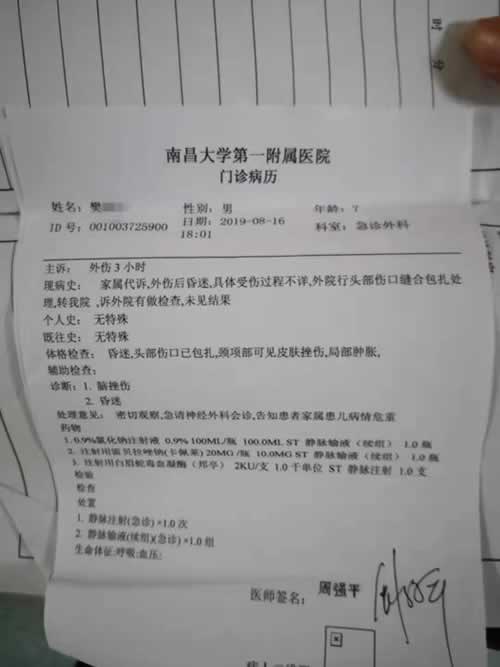 时
分
南昌大学第一附属医院
门诊病历
姓名：樊 性别：男 年龄：7
ID 号：001003725900 日期：2019-08-16 18:01 科室：急诊外科
主诉： 外伤 3 小时
现病史： 家属代诉,外伤后昏迷,具体受伤过程不详,外院行头部伤口缝合包扎处
理,转我院 ,诉外院有做检查,未见结果
个人史： 无特殊
既往史： 无特殊
体格检查： 昏迷,头部伤口已包扎,颈项部可见皮肤挫伤,局部肿胀,
辅助检查：
诊断：1. 脑挫伤
2. 昏迷
处理意见： 密切观察,急请神经外科会诊,告知患者家属患儿病情危重
药物
1. 0.9%氯化钠注射液 0.9% 100ML/瓶 100.0ML ST 静脉输液（续组） 1.0 瓶
2. 注射用雷贝拉唑钠(卡佩莱) 20MG /瓶 10.0MG ST 静脉输液（续组） 1.0 瓶
3. 注射用白眉蛇毒血凝酶（邦亭） 2KU/支 1.0 千单位 ST 静脉注射 1.0 支
检验
检查
处置
1. 静脉注射(急诊) ×1.0 次
2. 静脉输液(续组)(急诊) ×1.0 组
生命体征:呼吸:血压:
医师签名： 周强平